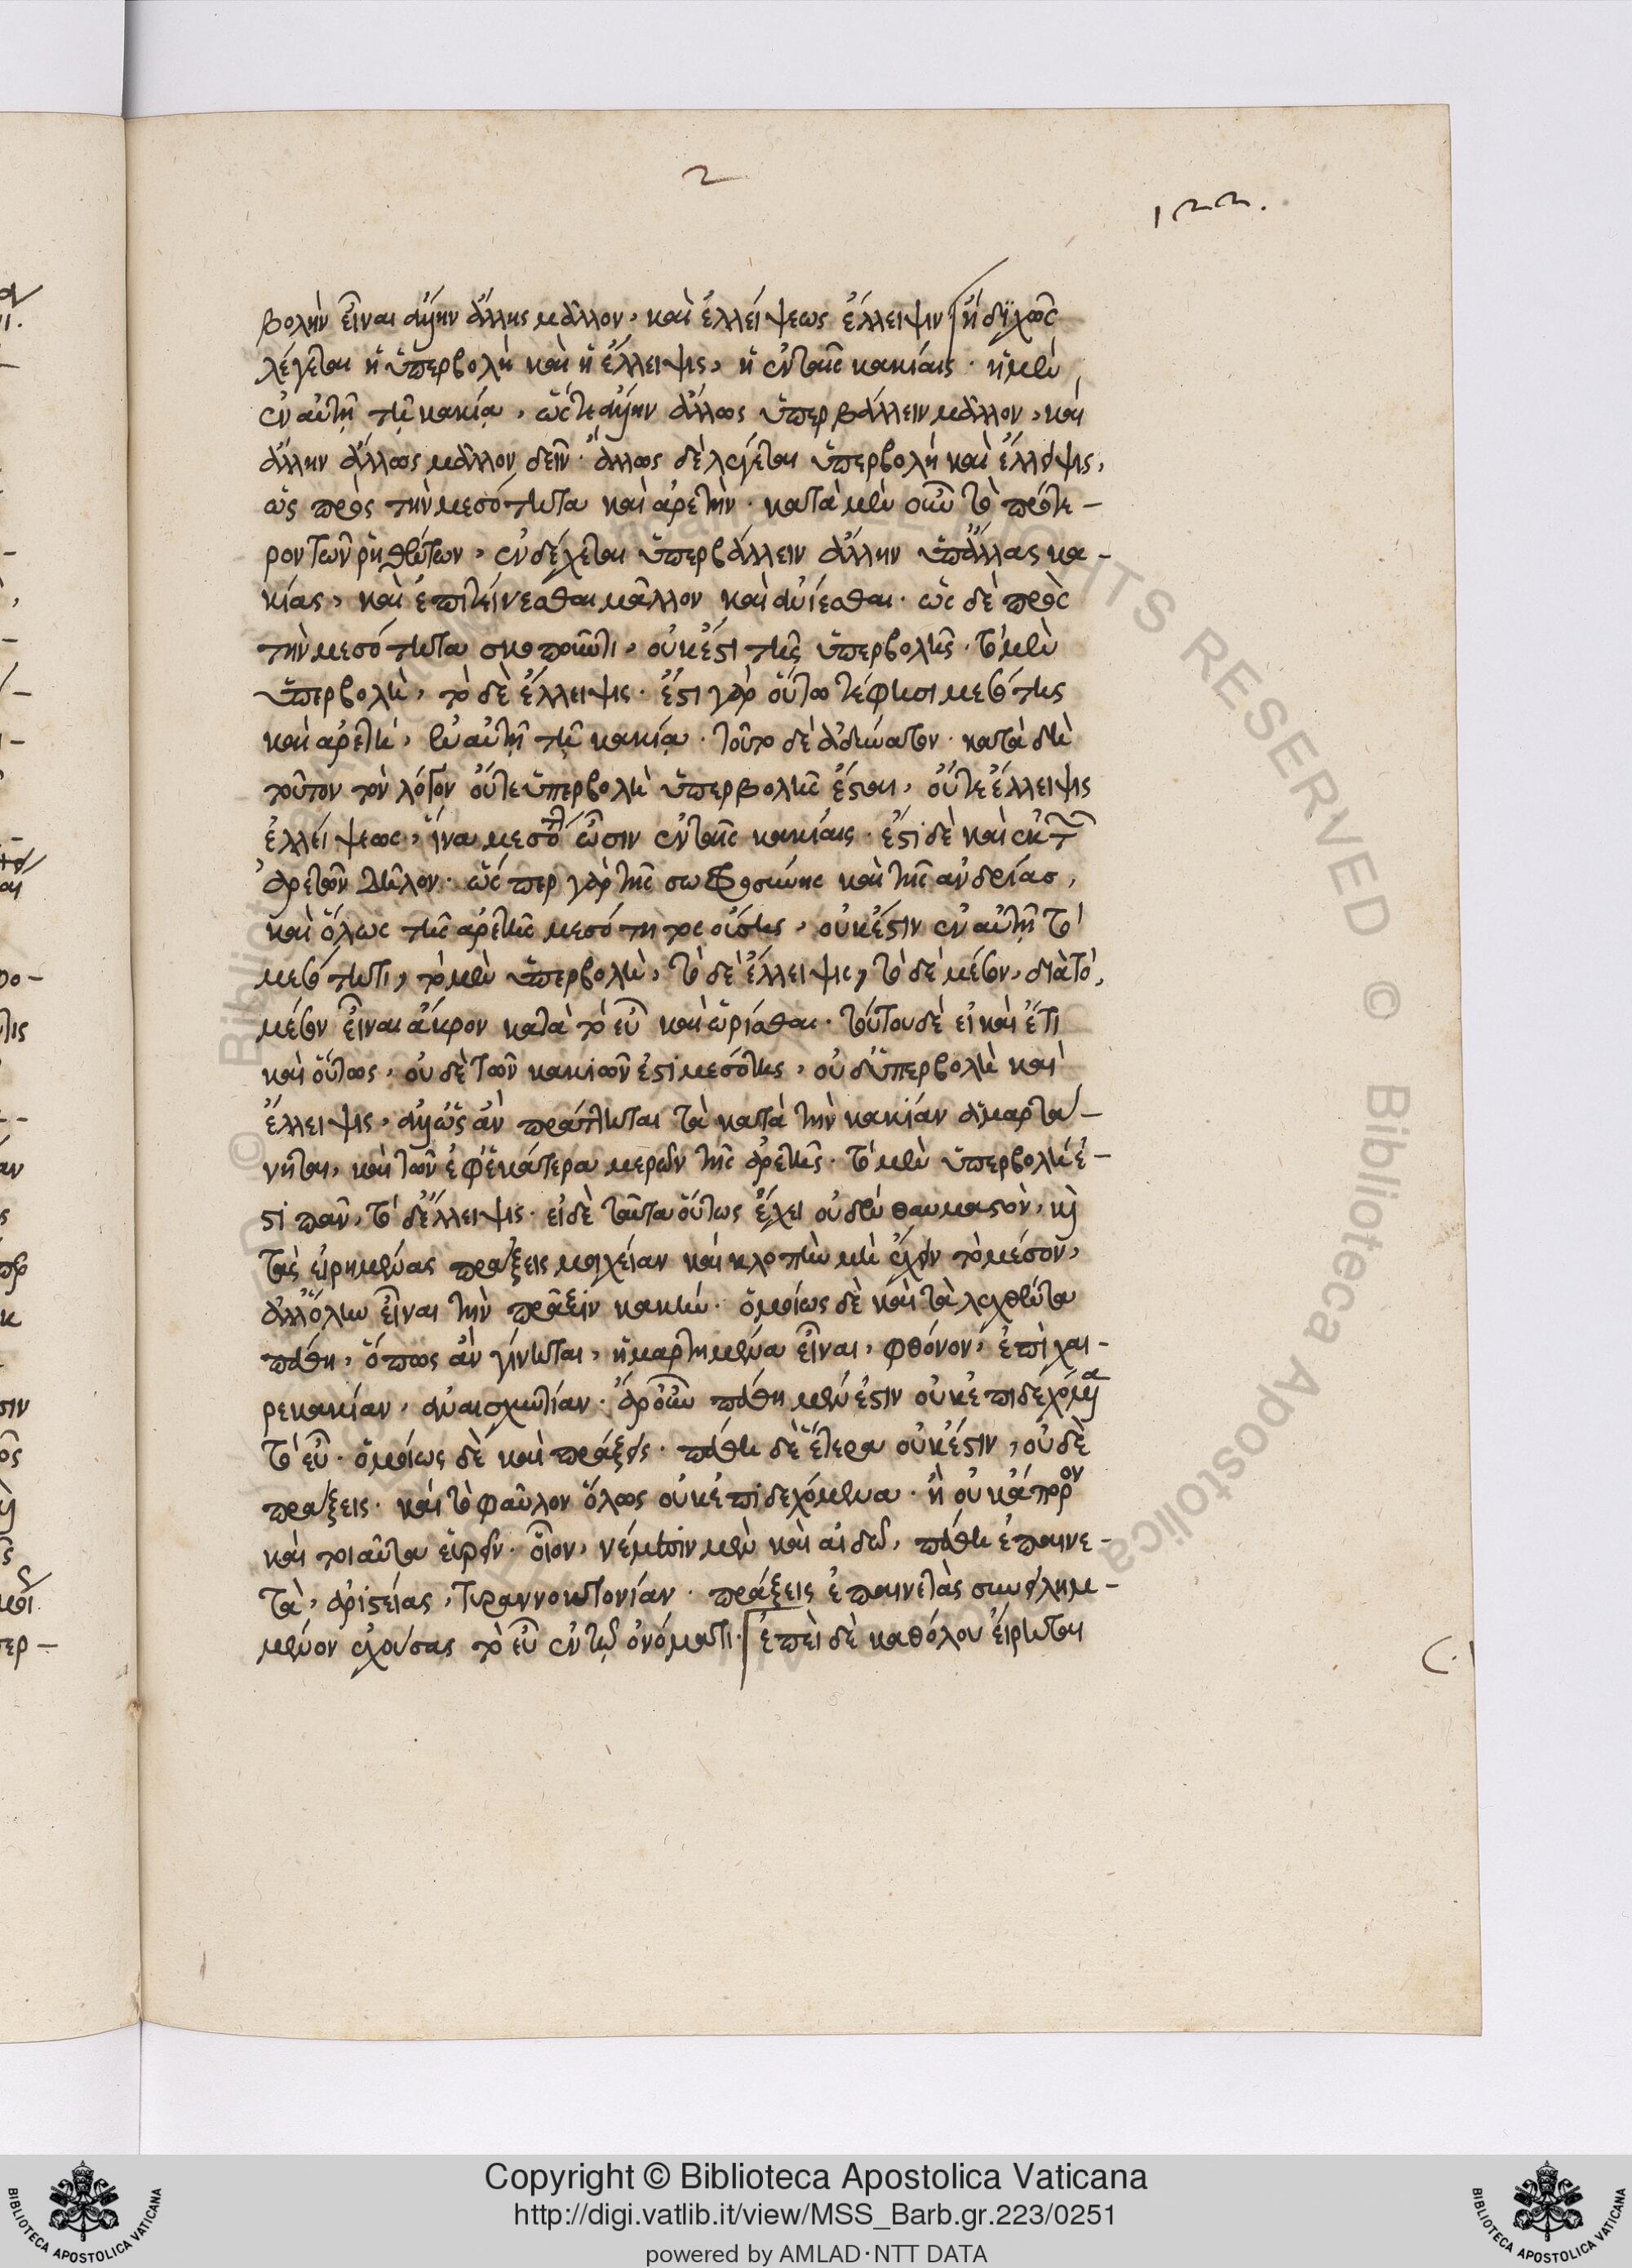 2
122.
βολὴν εἶναι ἀλλ' ἢν ἄλλης μᾶλλον, καὶ ἐλλείψεως ἔλλειψιν ἢ διχῶς
λέγεται ἡ ὑπερβολὴ καὶ ἡ ἔλλειψις, ἡ ἐν ταῖς κακίαις· ἡ μὲν
ἐν αὐτῇ τῇ κακίᾳ, ὥστε ἄλλην ἄλλως ὑπερβάλλειν μᾶλλον, καὶ
ἄλλην ἄλλως μᾶλλον δεῖν· ἄλλως δὲ λέγεται ὑπερβολὴ καὶ ἔλλειψις,
ὡς πρὸς τὴν μεσότητα καὶ ἀρετὴν· κατὰ μὲν οὖν τὸ πρότε-
ρον τῶν ῥηθέντων, ἐνδέχεται ὑπερβάλλειν ἄλλην ὑπ' ἄλλας κα-
κίας, καὶ ἐπιτείνεσθαι μᾶλλον καὶ ἀνίεσθαι· ὡς δὲ πρὸς
τὴν μεσότητα σκοποῦντι, οὐκέτι τῆς ὑπερβολῆς· τὸ μὲν
ὑπερβολὴ, τὸ δὲ ἔλλειψις· ἔσται γὰρ οὕτω μεσότης
καὶ ἀρετὴ, ἐν αὐτῇ τῇ κακίᾳ· τοῦτο δὲ ἀδύνατον· κατὰ δὴ
τοῦτον τὸν λόγον οὔτε ὑπερβολὴ ὑπερβολῆς ἔσται, οὔτε ἔλλειψις
ἐλλείψεως, ἵνα μεσότητες ὦσιν ἐν ταῖς κακίαις· ἔστι δὲ καὶ ἐκ τῶν
ἀρετῶν δῆλον· ὥσπερ γὰρ τῆς σωφροσύνης καὶ τῆς ἀνδρίας,
καὶ ὅλως τῆς ἀρετῆς μεσότητος οὔσης, οὐκ ἔστιν ἐν αὐτῇ τῇ
μεσότητι, τὸ μὲν ὑπερβολὴ, τὸ δὲ ἔλλειψις, τὸ δὲ μέσον, διὰ τὸ,
μέσον εἶναι ἄκρον κατὰ τὸ εὖ καὶ ὡρίσθαι· τούτου δὲ εἰ καὶ ἔτι
καὶ οὕτως, οὐδὲ τῶν κακιῶν ἐστι μεσότης, οὐδ' ὑπερβολὴ καὶ
ἔλλειψις, ἀλλ' ὡς ἂν πράττηται τὰ κατὰ τὴν κακίαν ἁμαρτά-
νηται, καὶ τῶν ἐφ' ἑκάτερα μερῶν τῆς ἀρετῆς· τὸ μὲν ὑπερβολὴ ἐ-
στι πᾶν, τὸ δ' ἔλλειψις· εἰ δὲ ταῦτα οὕτως ἔχει οὐδὲν θαυμαστὸν, καὶ
τὰς εἰρημένας πράξεις μοιχείαν καὶ κλοπὴν μὴ ἔχειν τὸ μέσον,
ἀλλ' ὅλην εἶναι τὴν πρᾶξιν κακήν· ὁμοίως δὲ καὶ τὰ λεχθέντα
πάθη, ὅπως ἂν γίνηται, ἡμαρτημένα εἶναι, φθόνον, ἐπιχαι-
ρεκακίαν, ἀναισχυντίαν· ἆρ' οὖν πάθη μέν ἐστιν οὐκ ἐπιδεχόμενα
τὸ εὖ· ὁμοίως δὲ καὶ πράξεις· πάθη δὲ ἕτερα οὐκ ἔστιν, οὐδὲ
πράξεις· καὶ τὸ φαῦλον ὅλως οὐκ ἐπιδεχόμενα· ἢ οὐκ ἄπορον
καὶ τοιαῦτα εὑρεῖν· οἷον, νέμεσιν μὲν καὶ αἰδῶ, πάθη ἐπαινε-
τὰ, ἀριστείας, τυραννοκτονίαν· πράξεις ἐπαινετὰς συνειλημ-
μένον ἐχούσας τὸ εὖ ἐν τῷ ὀνόματι· ἐπεὶ δὲ καθόλου εἴρηται
Copyright © Biblioteca Apostolica Vaticana
http://digi.vatlib.it/view/MSS_Barb.gr.223/0251
powered by AMLAD·NTT DATA